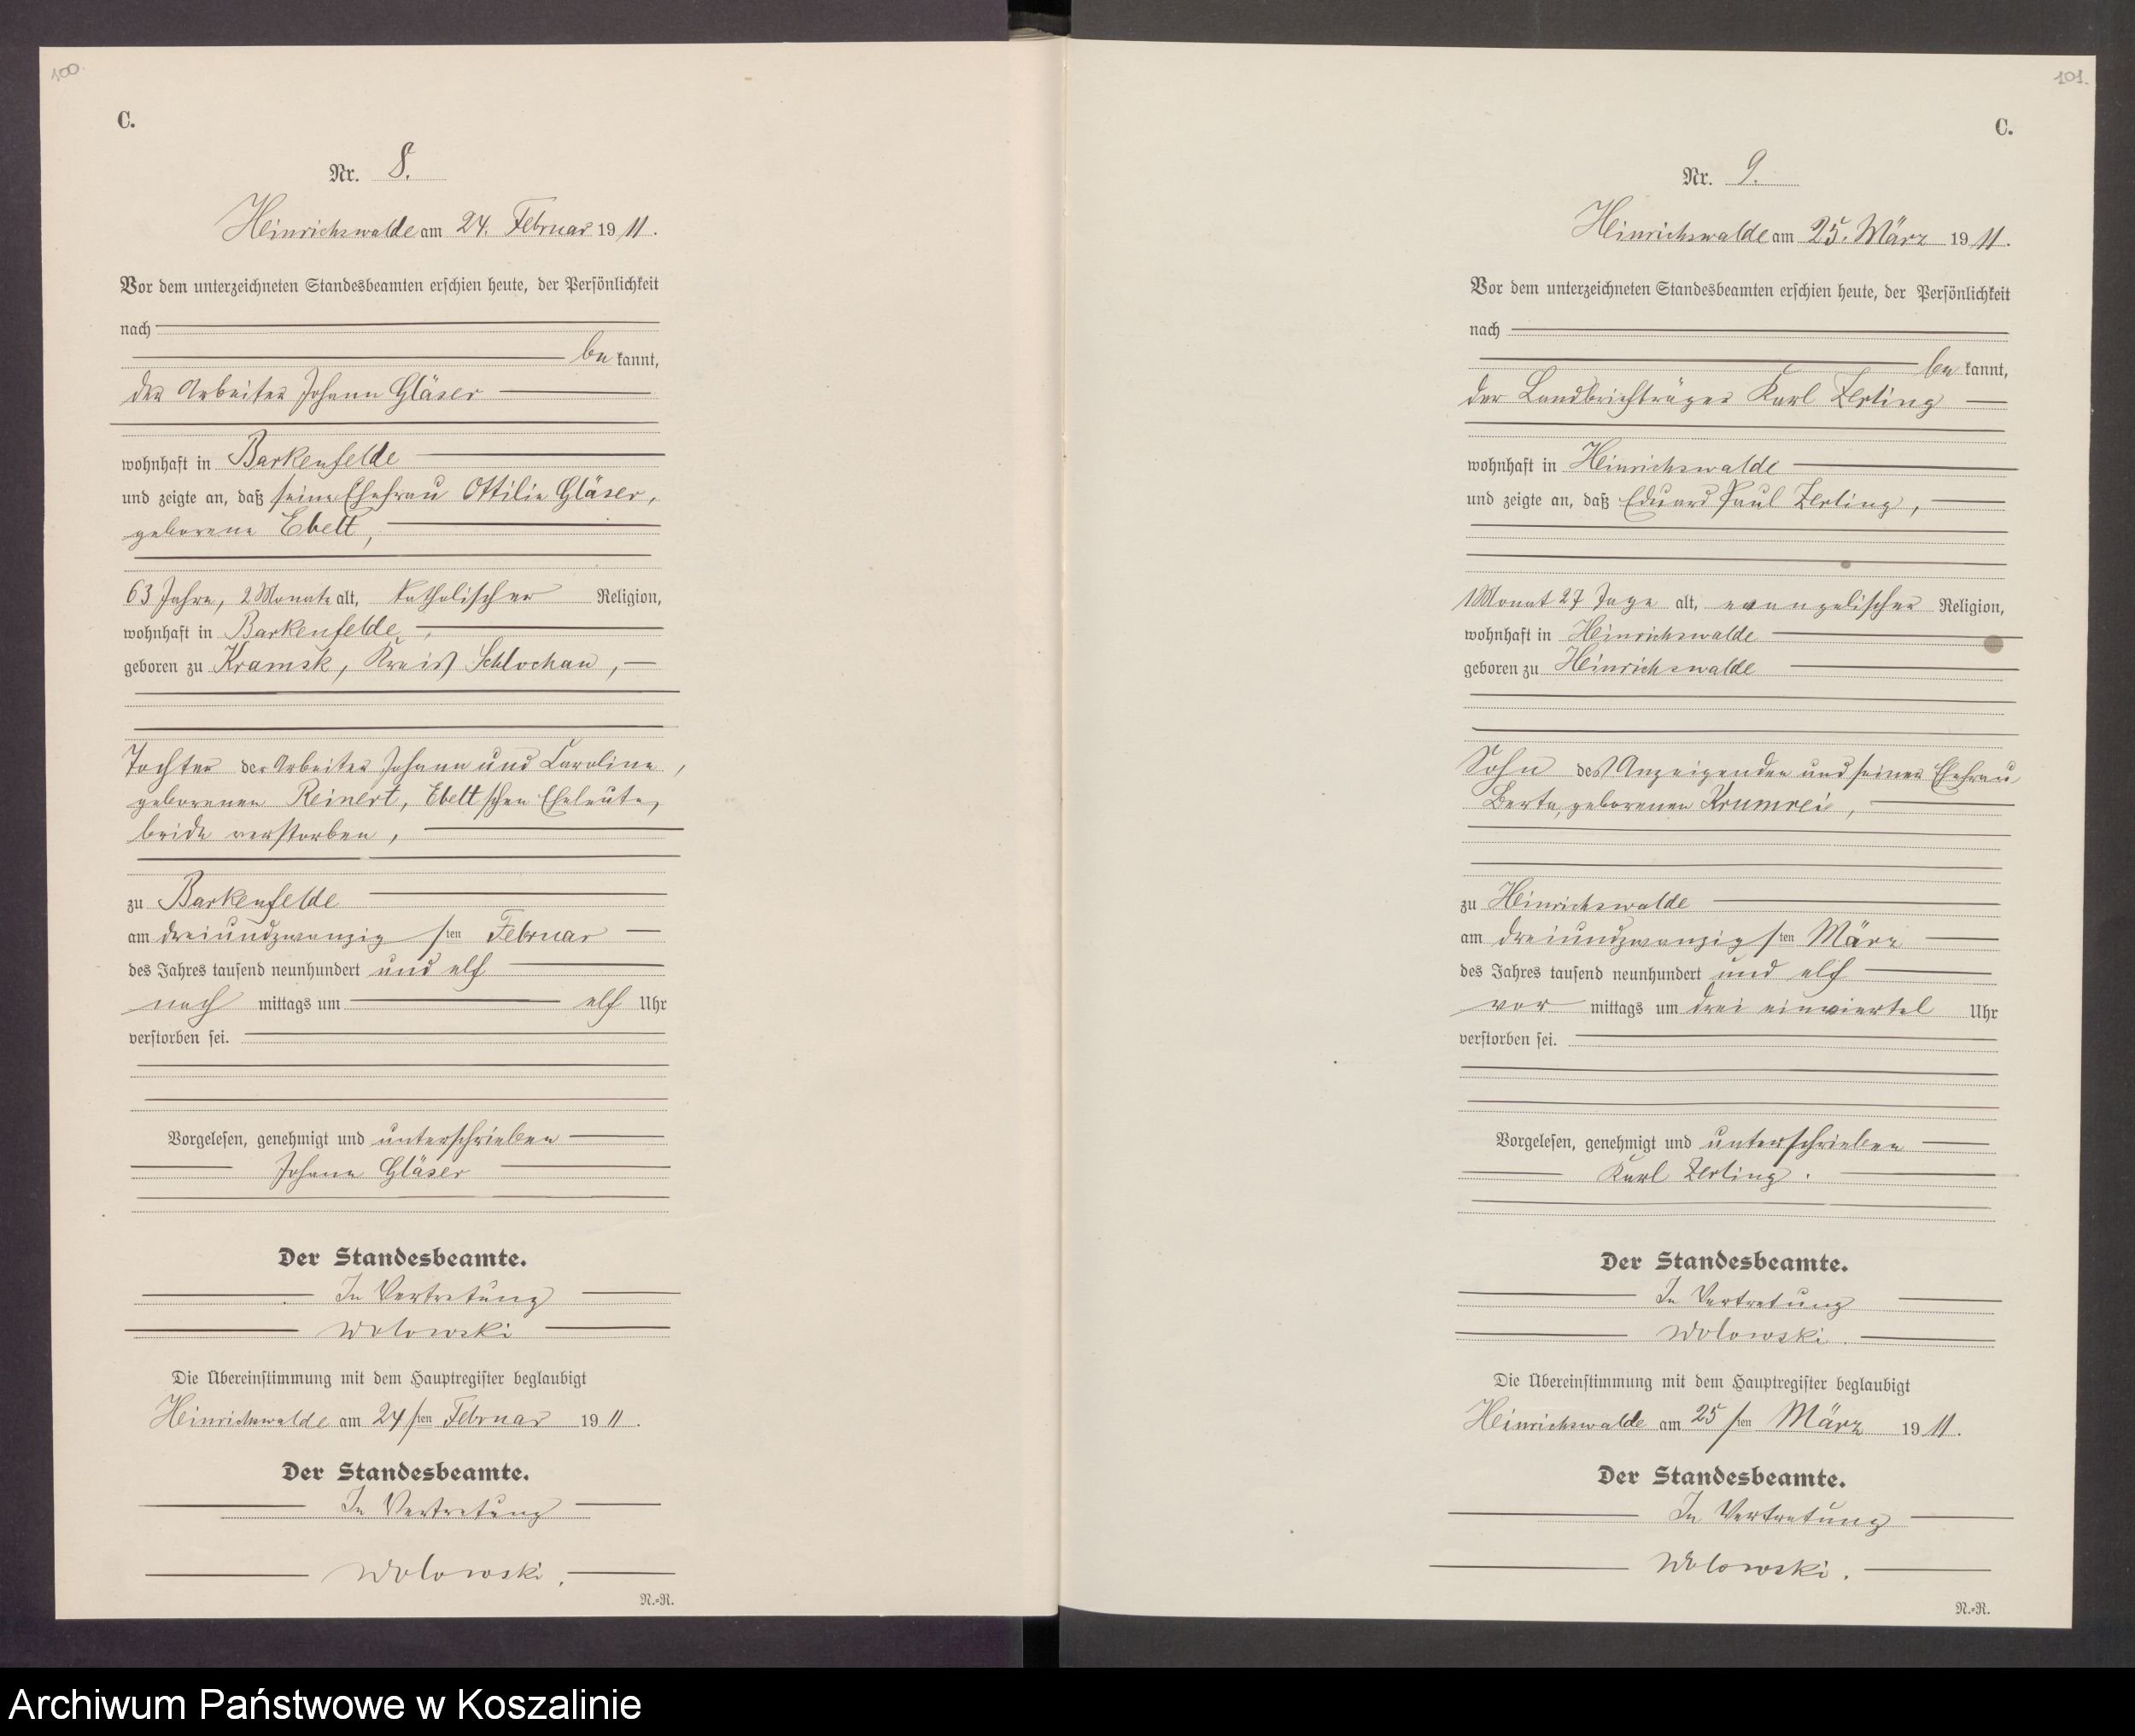 100.
C.
Nr. 8.
Heinrichswalde am 24. Februar 1911.
Vor dem unterzeichneten Standesbeamten erschien heute, der Persönlichkeit
nach
bekannt,
der Arbeiter Johann Gläser
wohnhaft in Barkenfelde
und zeigte an, daß seine Ehefrau Ottilie Gläser,
geborene Ebelt,
63 Jahre, 2 Monate alt, katholischer Religion,
wohnhaft in Barkenfelde,
geboren zu Kramsk, Kreis Schlochau,
Tochter der Arbeiter Johann und Caroline,
geborenen Reinert, Ebelt'schen Eheleute,
beide verstorben,
zu Barkenfelde
am dreiundzwanzigsten Februar
des Jahres tausend neunhundert und elf
nachmittags um elf Uhr
verstorben sei.
Vorgelesen, genehmigt und unterschrieben
Johann Gläser
Der Standesbeamte.
In Vertretung
Wolowski
Die Übereinstimmung mit dem Hauptregister beglaubigt
Heinrichswalde am 24sten Februar 1911.
Der Standesbeamte.
In Vertretung
Wolowski.
N.-R.
101.
C.
Nr. 9.
Heinrichswalde am 25. März 1911.
Vor dem unterzeichneten Standesbeamten erschien heute, der Persönlichkeit
nach
bekannt,
der Landbriefträger Karl Zerling
wohnhaft in Heinrichswalde
und zeigte an, daß Eduard Paul Zerling,
1 Monat 27 Tage alt, evangelischer Religion,
wohnhaft in Heinrichswalde
geboren zu Heinrichswalde
Sohn des Anzeigenden und seiner Ehefrau
Berta, geborenen Krumrei,
zu Heinrichswalde
am dreiundzwanzigsten März
des Jahres tausend neunhundert und elf
vormittags um drei einviertel Uhr
verstorben sei.
Vorgelesen, genehmigt und unterschrieben
Karl Zerling.
Der Standesbeamte.
In Vertretung
Wolowski.
Die Übereinstimmung mit dem Hauptregister beglaubigt
Heinrichswalde am 25sten März 1911.
Der Standesbeamte.
In Vertretung
Wolowski.
N.-R.
Archiwum Państwowe w Koszalinie